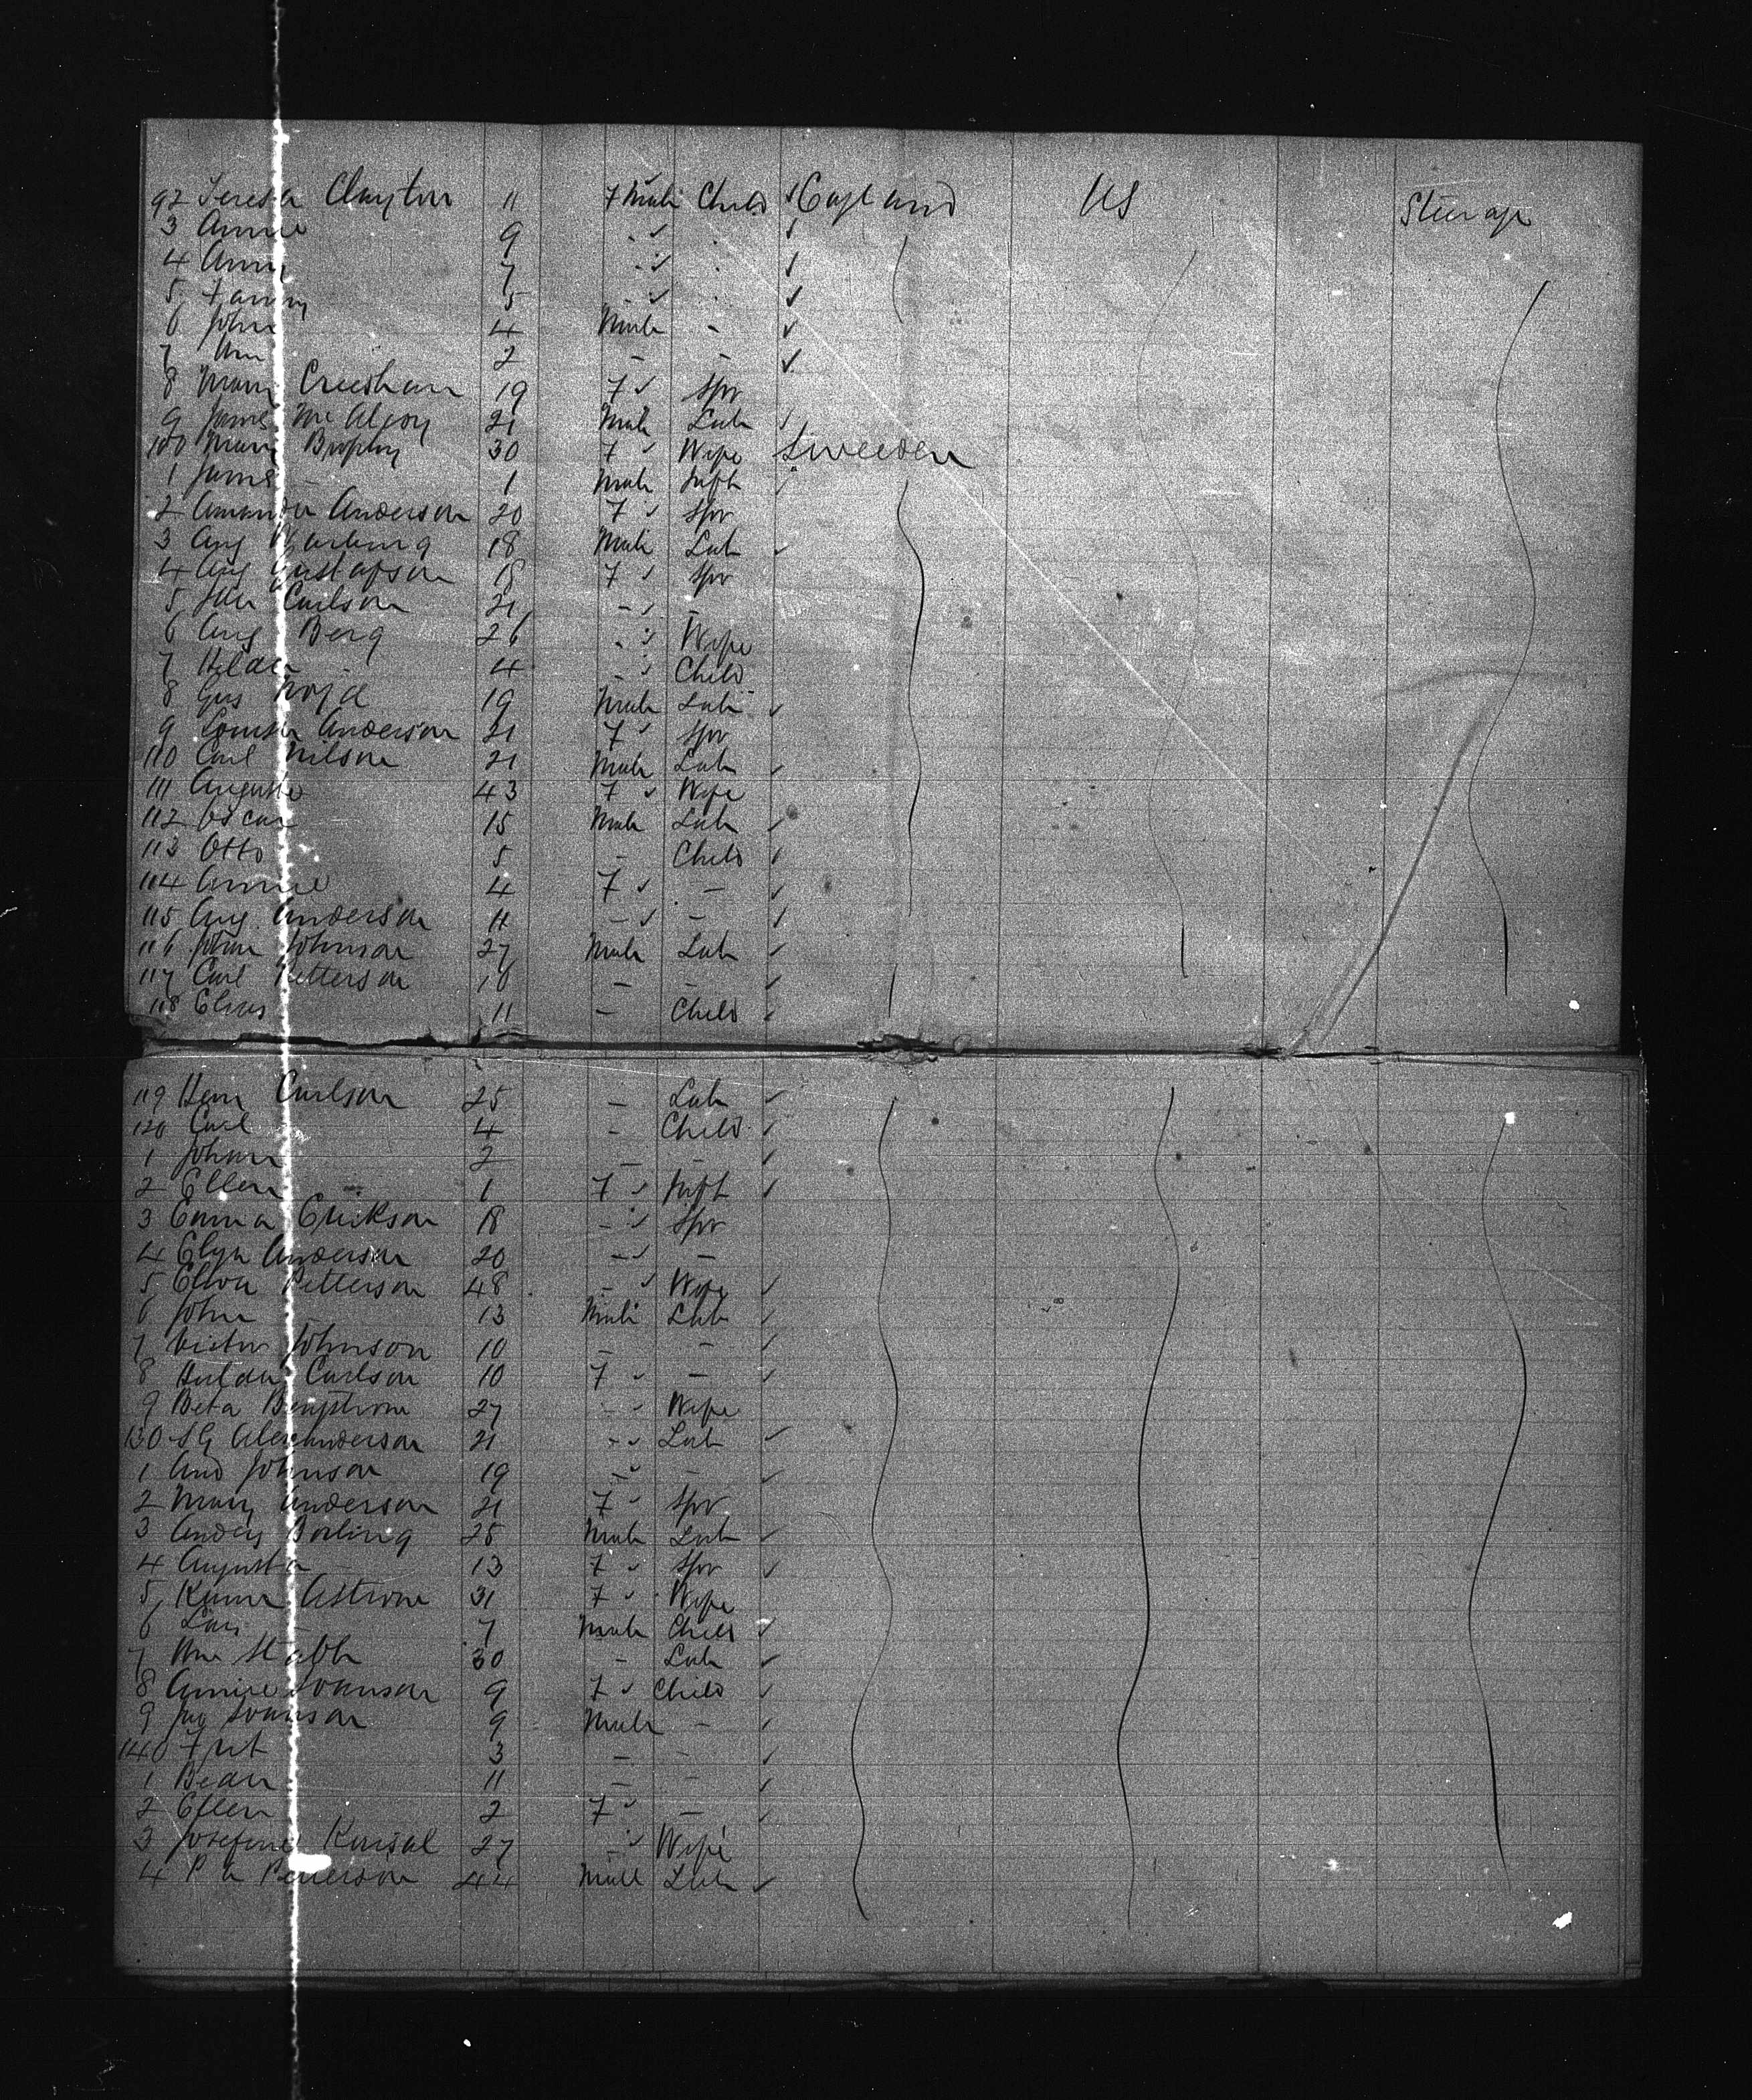 92 Teresa Clayton 11 Female Child England US Steerage
3 Annie 9
4 Amy 7
5 Fanny 5
6 John 4 Male -
7 Wm 2 - -
8 Mary 19 F Spr
9 James Mc Alcoy 21 Male Lab
100 Mary Brophy 30 F Wife Sweeden
1 James - 1 Male Inft
2 Amanda Anderson 20 F Spr
3 Aug 18 Male Lab
4 Aug Gustafson 18 F Spr
5 Carlson 21 - -
6 Aug Berg 26 Wife
7 Hilda 4 - Child
8 Gus 19 Male Lab
9 Louisa Anderson 21 F Spr
110 Carl Nilson 21 Male Lab
111 Augusta 43 F Wife
112 Oscar 15 Male Lab
113 Otto 5 - Child
114 Annie 4 F -
115 Aug Anderson 11 - -
116 John Johnson 27 Male Lab
117 Carl Petterson 10 - -
118 Elias 11 - Child
119 Carlson 25 - Lab
120 Carl 4 - Child
1 Johan 2 - -
2 Ellen 1 F Inft
3 Emma Erikson 18 - Spr
4 Anderson 20 - -
5 Petterson 48 - Wife
6 John 13 Male Lab
7 Victor Johnson 10 - -
8 Hulda Carlson 10 F -
9 Beta 27 Wife
130 S G Alexanderson 21 Lab
1 And Johnson 19 - -
2 Mary Anderson 21 F Spr
3 Andes 25 Male Lab
4 Augusta - 13 F Spr
5 Astrom 31 F Wife
6 - 7 Male Child
7 30 - Lab
8 Annie Swanson 9 F Child
9 Swanson 9 Male -
140 3 - -
1 11 - -
2 Ellen 2 F -
3 Josefine 27 - Wife
4 P A Petterson 44 Male Lab